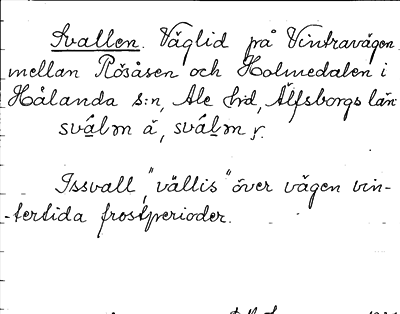 Svallen. Väglid på Vintravägen
mellan Rösåsen och Holmedalen i
Hålanda s:n, Ale hd, Älfsborgs län
svålm å, svålm ჯ.
Issvall, "vällis" över vägen vin-
-tertida frostperioder.